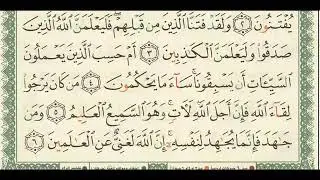 يُفْتَنُونَ ٢ وَلَقَدْ فَتَنَّا ٱلَّذِينَ مِن قَبْلِهِمْ ۖ فَلَيَعْلَمَنَّ ٱللَّهُ ٱلَّذِينَ
صَدَقُوا۟ وَلَيَعْلَمَنَّ ٱلْكَـٰذِبِينَ ٣ أَمْ حَسِبَ ٱلَّذِينَ يَعْمَلُونَ
ٱلسَّيِّـَٔاتِ أَن يَسْبِقُونَا ۚ سَآءَ مَا يَحْكُمُونَ ٤ مَن كَانَ يَرْجُوا۟
لِقَآءَ ٱللَّهِ فَإِنَّ أَجَلَ ٱللَّهِ لَـَٔاتٍ ۚ وَهُوَ ٱلسَّمِيعُ ٱلْعَلِيمُ ٥ وَمَن
جَـٰهَدَ فَإِنَّمَا يُجَـٰهِدُ لِنَفْسِهِۦٓ ۚ إِنَّ ٱللَّهَ لَغَنِىٌّ عَنِ ٱلْعَـٰلَمِينَ ٦